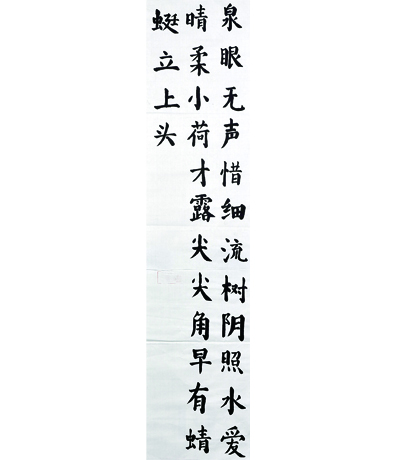 泉眼无声惜细流树阴照水爱
晴柔小荷才露尖尖角早有蜻
蜓立上头